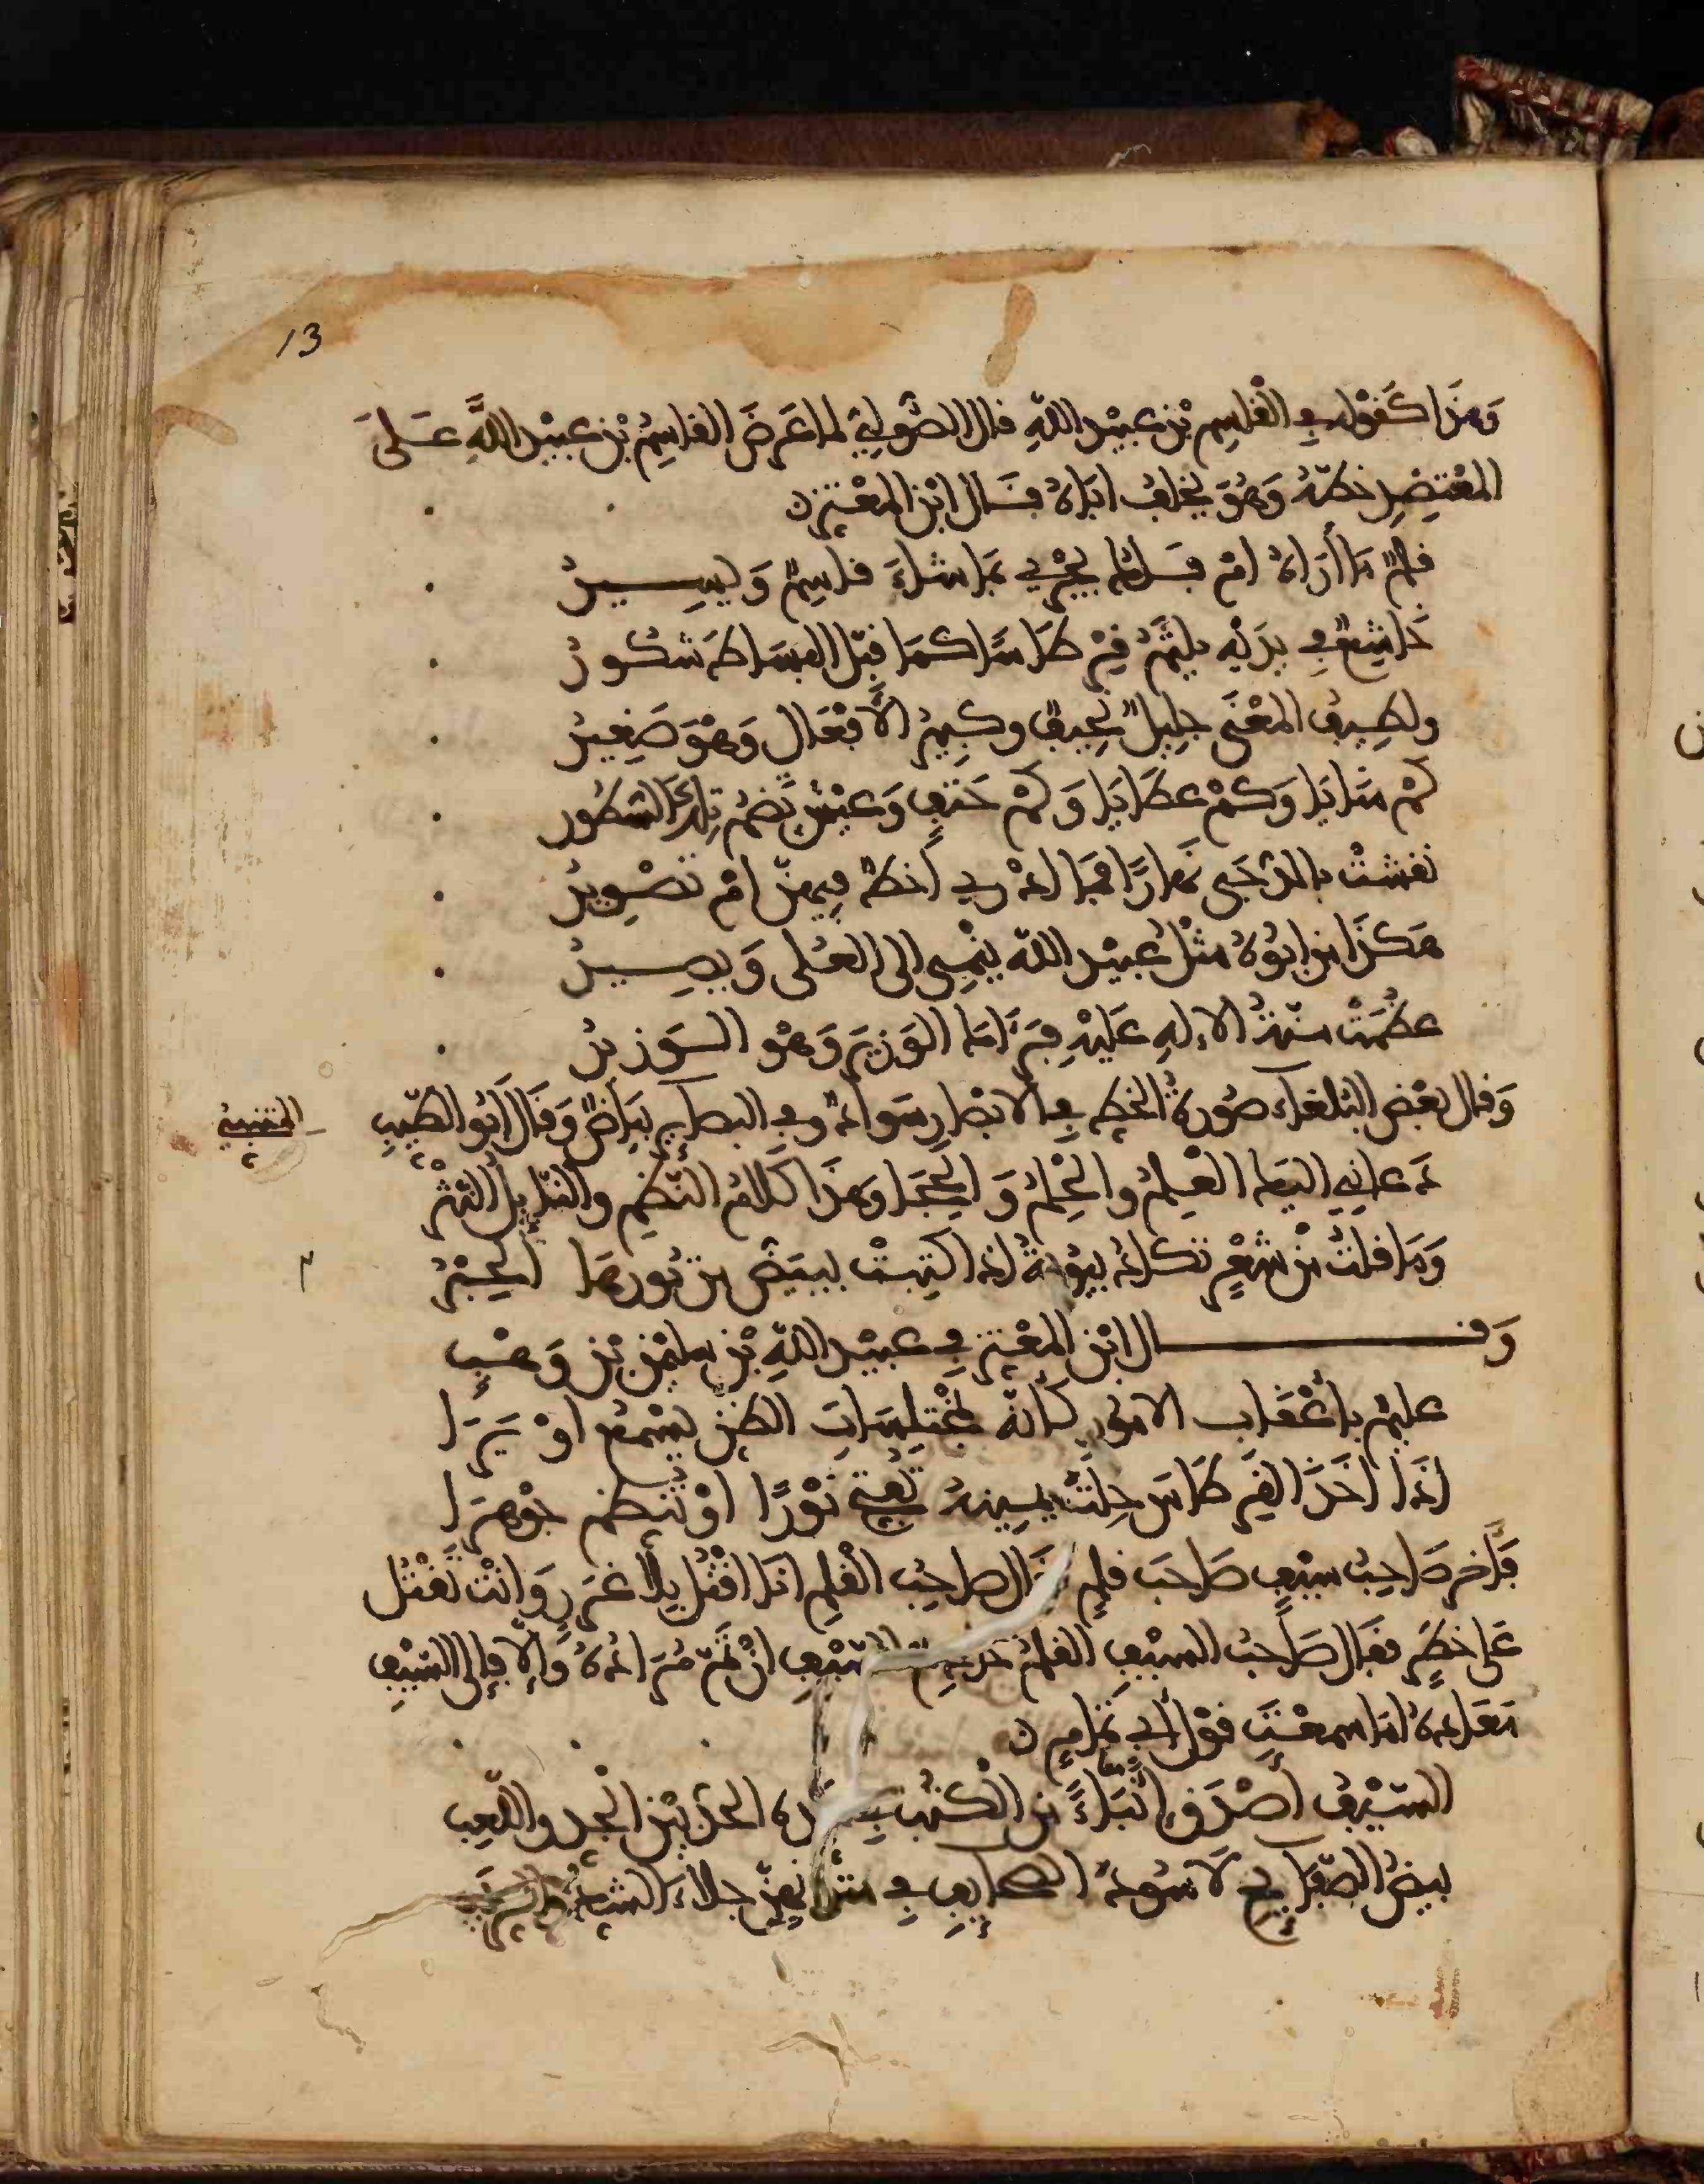 13
وَهَذَا كَقَوْلِهِ فِي الْقَاسِمِ بْنِ عُبَيْدِ اللَّهِ قال الصُّولِيّ لما عَرَضَ القاسِمُ بْنُ عبيْد اللَّهِ عَلَى
المعْتَضِدِ خطّهُ وَهُوَ يخلف اباهُ فقال ابْن المعْتز
قلمٌ مَا أرَاهُ امْ فَلَكٌ يجْرِي بمَا شاءَ قاسِمٌ وَيَسِيرُ
خَاشِعٌ فِي يدَيْهِ يلثِمُ قِرْطَاسًا كمَا قبّل البِسَاطَ شكورُ
ولطيفُ المعْنَى جليلٌ نحِيفٌ وكبيرُ الأَفْعَالِ وَهْوَ صَغِيرُ
كَمْ منَايَا وَكَمْ عطَايَا وَكَمْ حَتفٍ وَعَيْشٍ تَضُمُّ تِلكَ السّطُور
نقشتْ بالدّجَى نهارًا فمَا ادْرِي أَخطٌّ فِيهِنّ امْ تصْوِيرُ
هكذَا من ابُوهُ مثْلُ عُبيْد اللّه ينْمِي الى العُلى وَيصِيرُ
عظُمَتْ منّةُ الالهِ عَلَيْهِ فهُنَاكَ الوَزِيرُ وَهْوَ الوَزيرُ
وَقال بعْض البُلغاءِ صُورةُ الخطِ فِي الابْصَارِ سَوادٌ وفِي البصَايِرِ بيَاضٌ وَقَالَ ابُو الطّيّبِ
المتنبي
دَعانِي اليكَ العِلمُ والحِلْمُ وَالحِجَا وَهَذَا الكلامُ النّظمُ والنّايِلُ النّثْرُ
وَمَا قلتُ منْ شعْرٍ تكادُ بيُوتُهُ اذا كتِبتْ يبيَضُّ من نُورِهَا الحِبْرُ
وَقـــال ابْن المعْتزِ فِي عبيْد اللّهِ بْنِ سليْمن بْنِ وَهْبٍ
عليمٌ بأعْقَابِ الامُورِ كأنّهُ بمخْتلِسَاتِ الظنِّ يسْمعُ اوْ يَرَى
اذَا اخَذَ القِرْطَاسَ خِلتَ يمينَهُ تُفتّح نَوْرًا اوْ تُنظم جوْهرَا
فَاخر صَاحِبُ سيْفٍ صَاحبَ قلمٍ فَقَال صاحِبُ القلمِ انَا اقْتُل بلاَ غرَرٍ وَانْتَ تَقْتُل
عَلى خطَرٍ فقال صَاحبُ السيْفِ القلمُ خديمُ السّيْفِ انْ تمّ مُرَادُهُ وَالّا فإِلى السّيْفِ
مَعَادهُ امَا سمعْتَ قوْل أبِي تمّامٍ
السّيْفُ أَصْدَقُ إنْبَاءً من الكُتُبِ فِي حَدّه الحدّ بيْن الجِد واللّعِب
بيضُ الصّفَايِحِ لَا سُودُ الصحايِفِ فِي متُونِهِنّ جلاءُ الشّكِّ وَالرّيَب